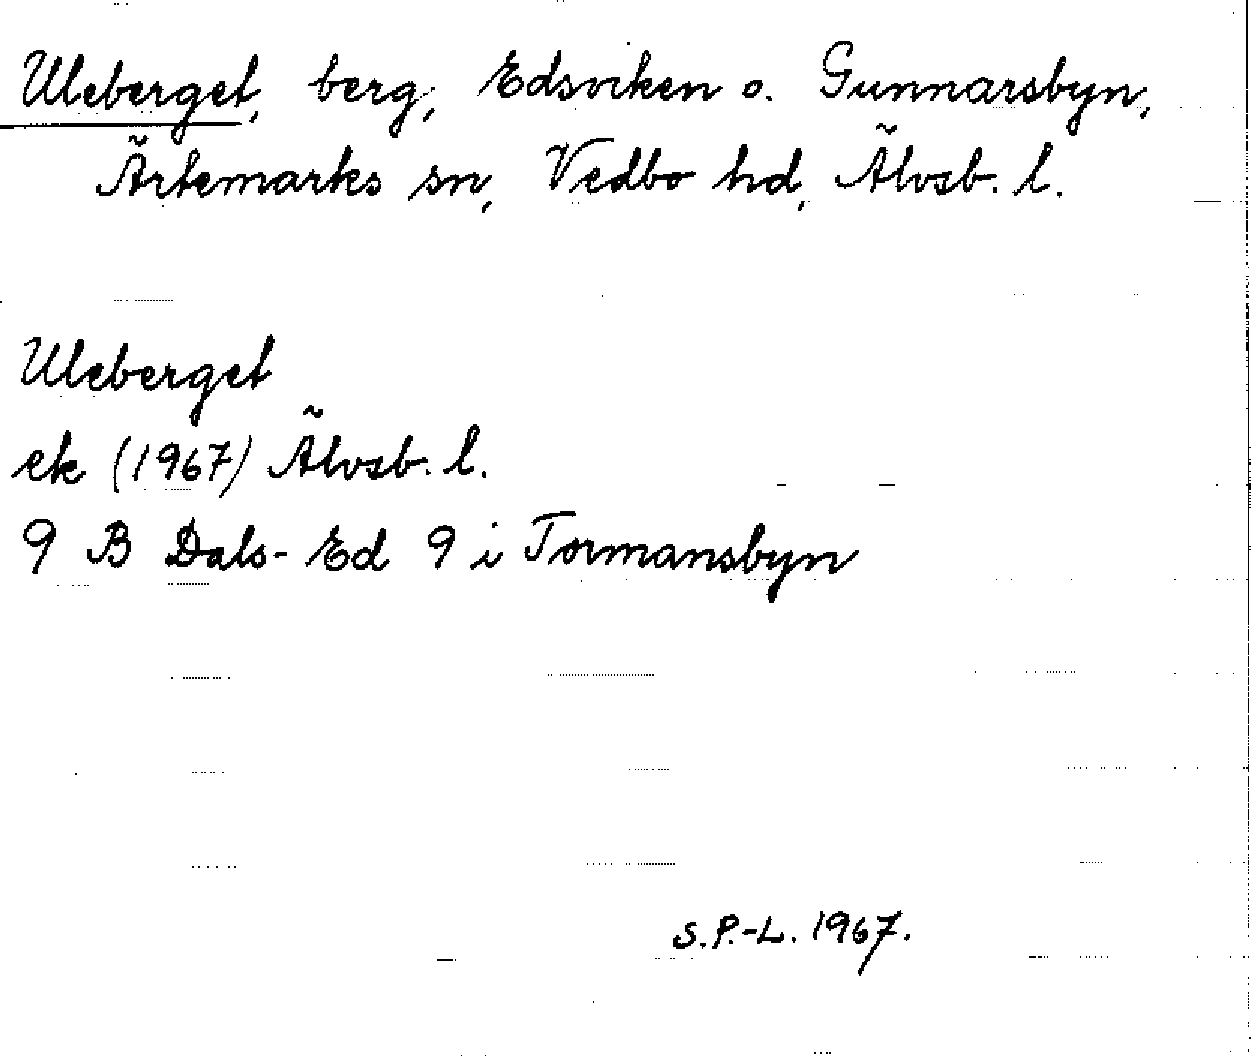 Uleberget, berg, Edsviken o. Gunnarsbyn,
Ärtemarks sn, Vedbo hd, Älvsb. l.
Uleberget
ek (1967) Älvsb. l.
9 B Dals-Ed 9 i Tormansbyn
S.P.-L. 1967.